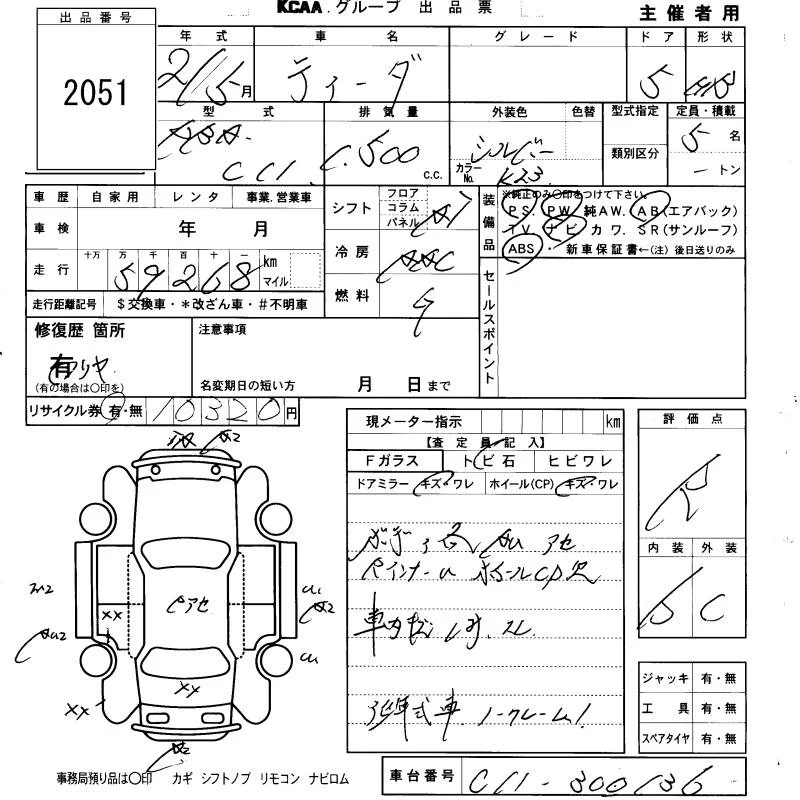 KCAA グループ 出品票 主催者用
出品番号
2051
年式 車名 グレード ドア 形状
月 ティーダ 5 HB
型式 排気量 外装色 色替 型式指定 定員・積載
CC1. C.500 c.c. シルバー カラーNo. K23 類別区分 5 名
ートン
車歴 自家用 レンタ 事業.営業車
車検 年 月
走行 十万 万 千 百 十 一
59268 km マイル
走行距離記号 $交換車・*改ざん車・#不明車
シフト フロア コラム パネル AT
冷房 AAC
燃料 G
装備品 ※純正のみ〇印をつけて下さい。
PS. PW. 純AW. AB(エアバック)
TV. ナビ カワ. SR(サンルーフ)
ABS・ 新車保証書←(注) 後日送りのみ
セールスポイント
修復歴 箇所 注意事項
有
(有の場合は〇印を) 名変期日の短い方 月 日まで
リサイクル券 有・無 10320円
現メーター指示 km
【査定員記入】
Fガラス トビ石 ヒビワレ
ドアミラー キズ・ワレ ホイール(CP) キズ・ワレ
評価点
R
内装 外装
B C
A2
ピアセ
XX
A2
XX
XX
A2
ホイールCP欠
年式車 ノークレーム!
ジャッキ 有・無
工具 有・無
スペアタイヤ 有・無
事務局預り品は〇印 カギ シフトノブ リモコン ナビロム
車台番号 C11-300136